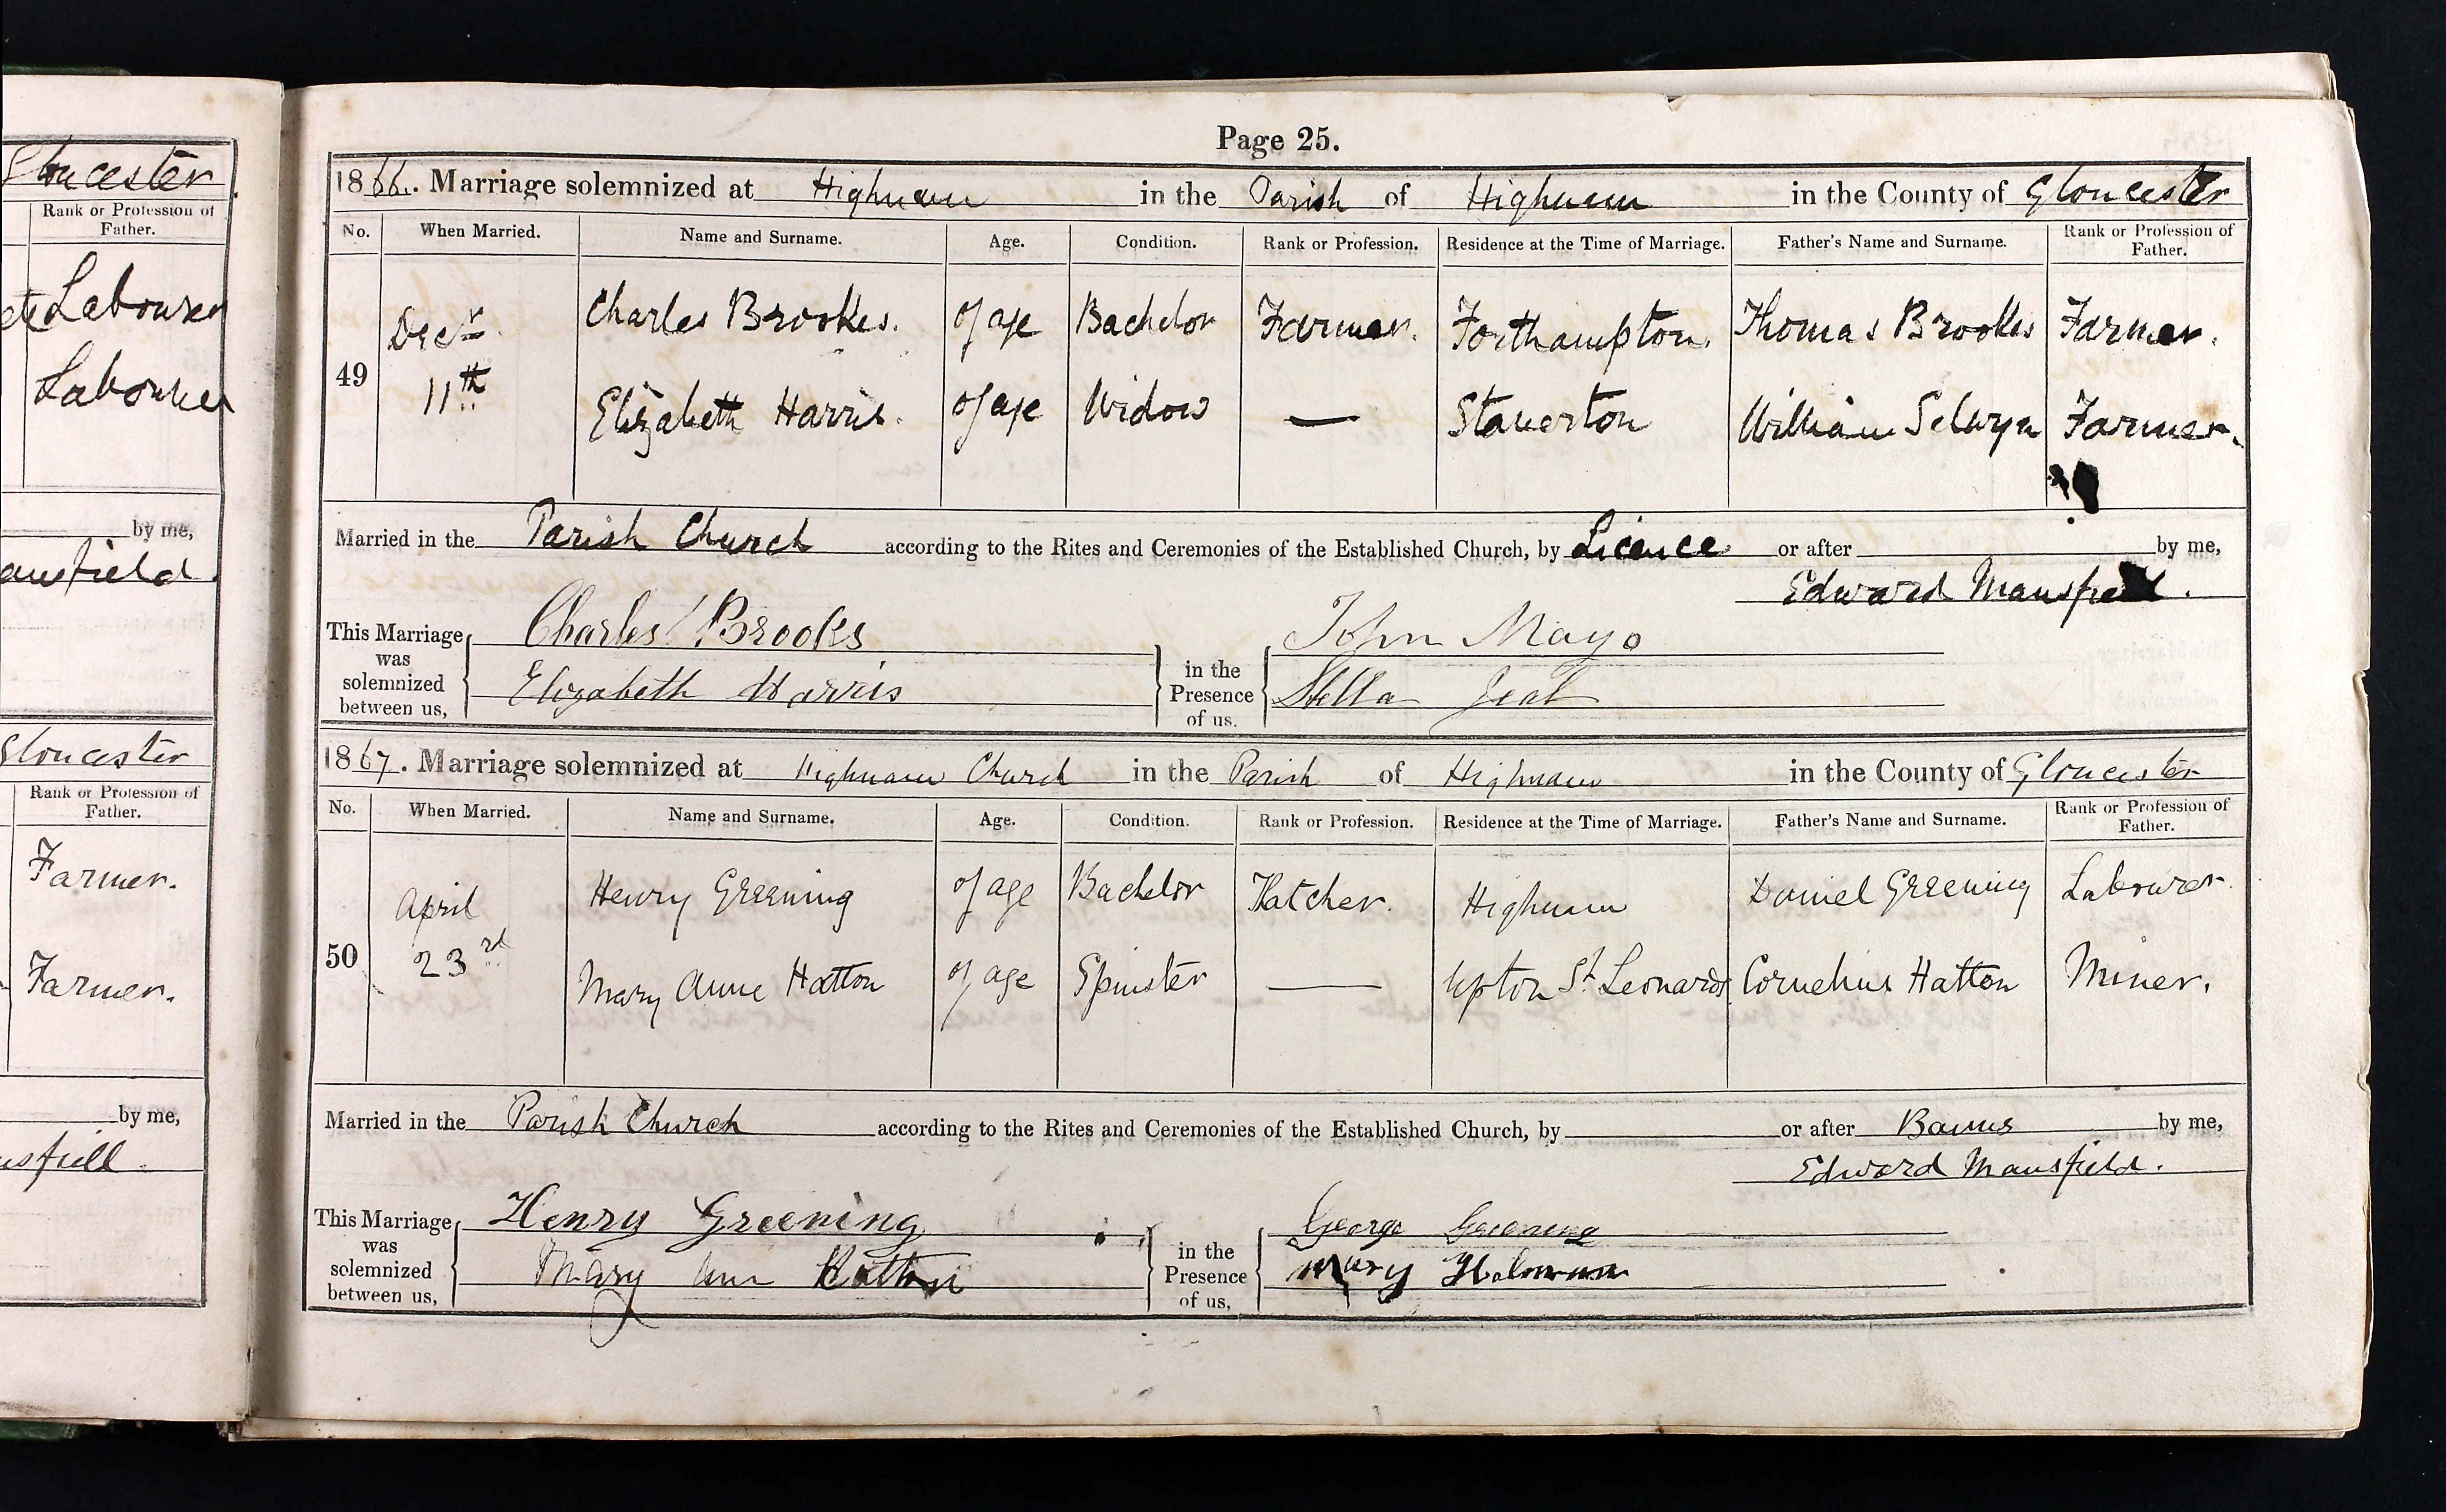 Gloucester
Rank or Profession of
Father.
Labourer
Labourer
by me,
Gloucester
Rank or Profession of
Father.
Farmer.
Farmer.
by me,
Page 25.
1866. Marriage solemnized at Highnam in the Parish of Highnam in the County of Gloucester
No. When Married. Name and Surname. Age. Condition. Rank or Profession. Residence at the Time of Marriage. Father's Name and Surname. Rank or Profession of Father.
49 Decr 11th
Charles Brookes. of age Bachelor Farmer. Forthampton. Thomas Brookes Farmer.
Elizabeth Harris. of age Widow — Staverton William Selwyn Farmer.
Married in the Parish Church according to the Rites and Ceremonies of the Established Church, by Licence or after by me,
Edward Mansfield.
This Marriage was solemnized between us,
Charles Brookes
Elizabeth Harris
in the Presence of us.
John Mayo
Stella
1867. Marriage solemnized at Highnam Church in the Parish of Highnam in the County of Gloucester
No. When Married. Name and Surname. Age. Condition. Rank or Profession. Residence at the Time of Marriage. Father's Name and Surname. Rank or Profession of Father.
50 April 23rd
Henry Greening of age Bachelor Thatcher. Highnam Daniel Greening Labourer.
Mary Anne Hatton of age Spinster — Upton St Leonards Cornelius Hatton Miner.
Married in the Parish Church according to the Rites and Ceremonies of the Established Church, by or after Banns by me,
Edward Mansfield.
This Marriage was solemnized between us,
Henry Greening
Mary Ann Hatton
in the Presence of us,
George Greening
Mary